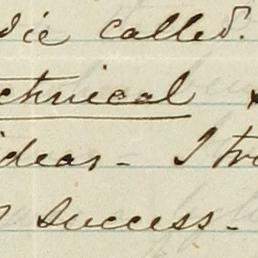 die called.
chnical
ideas - I tr
success.